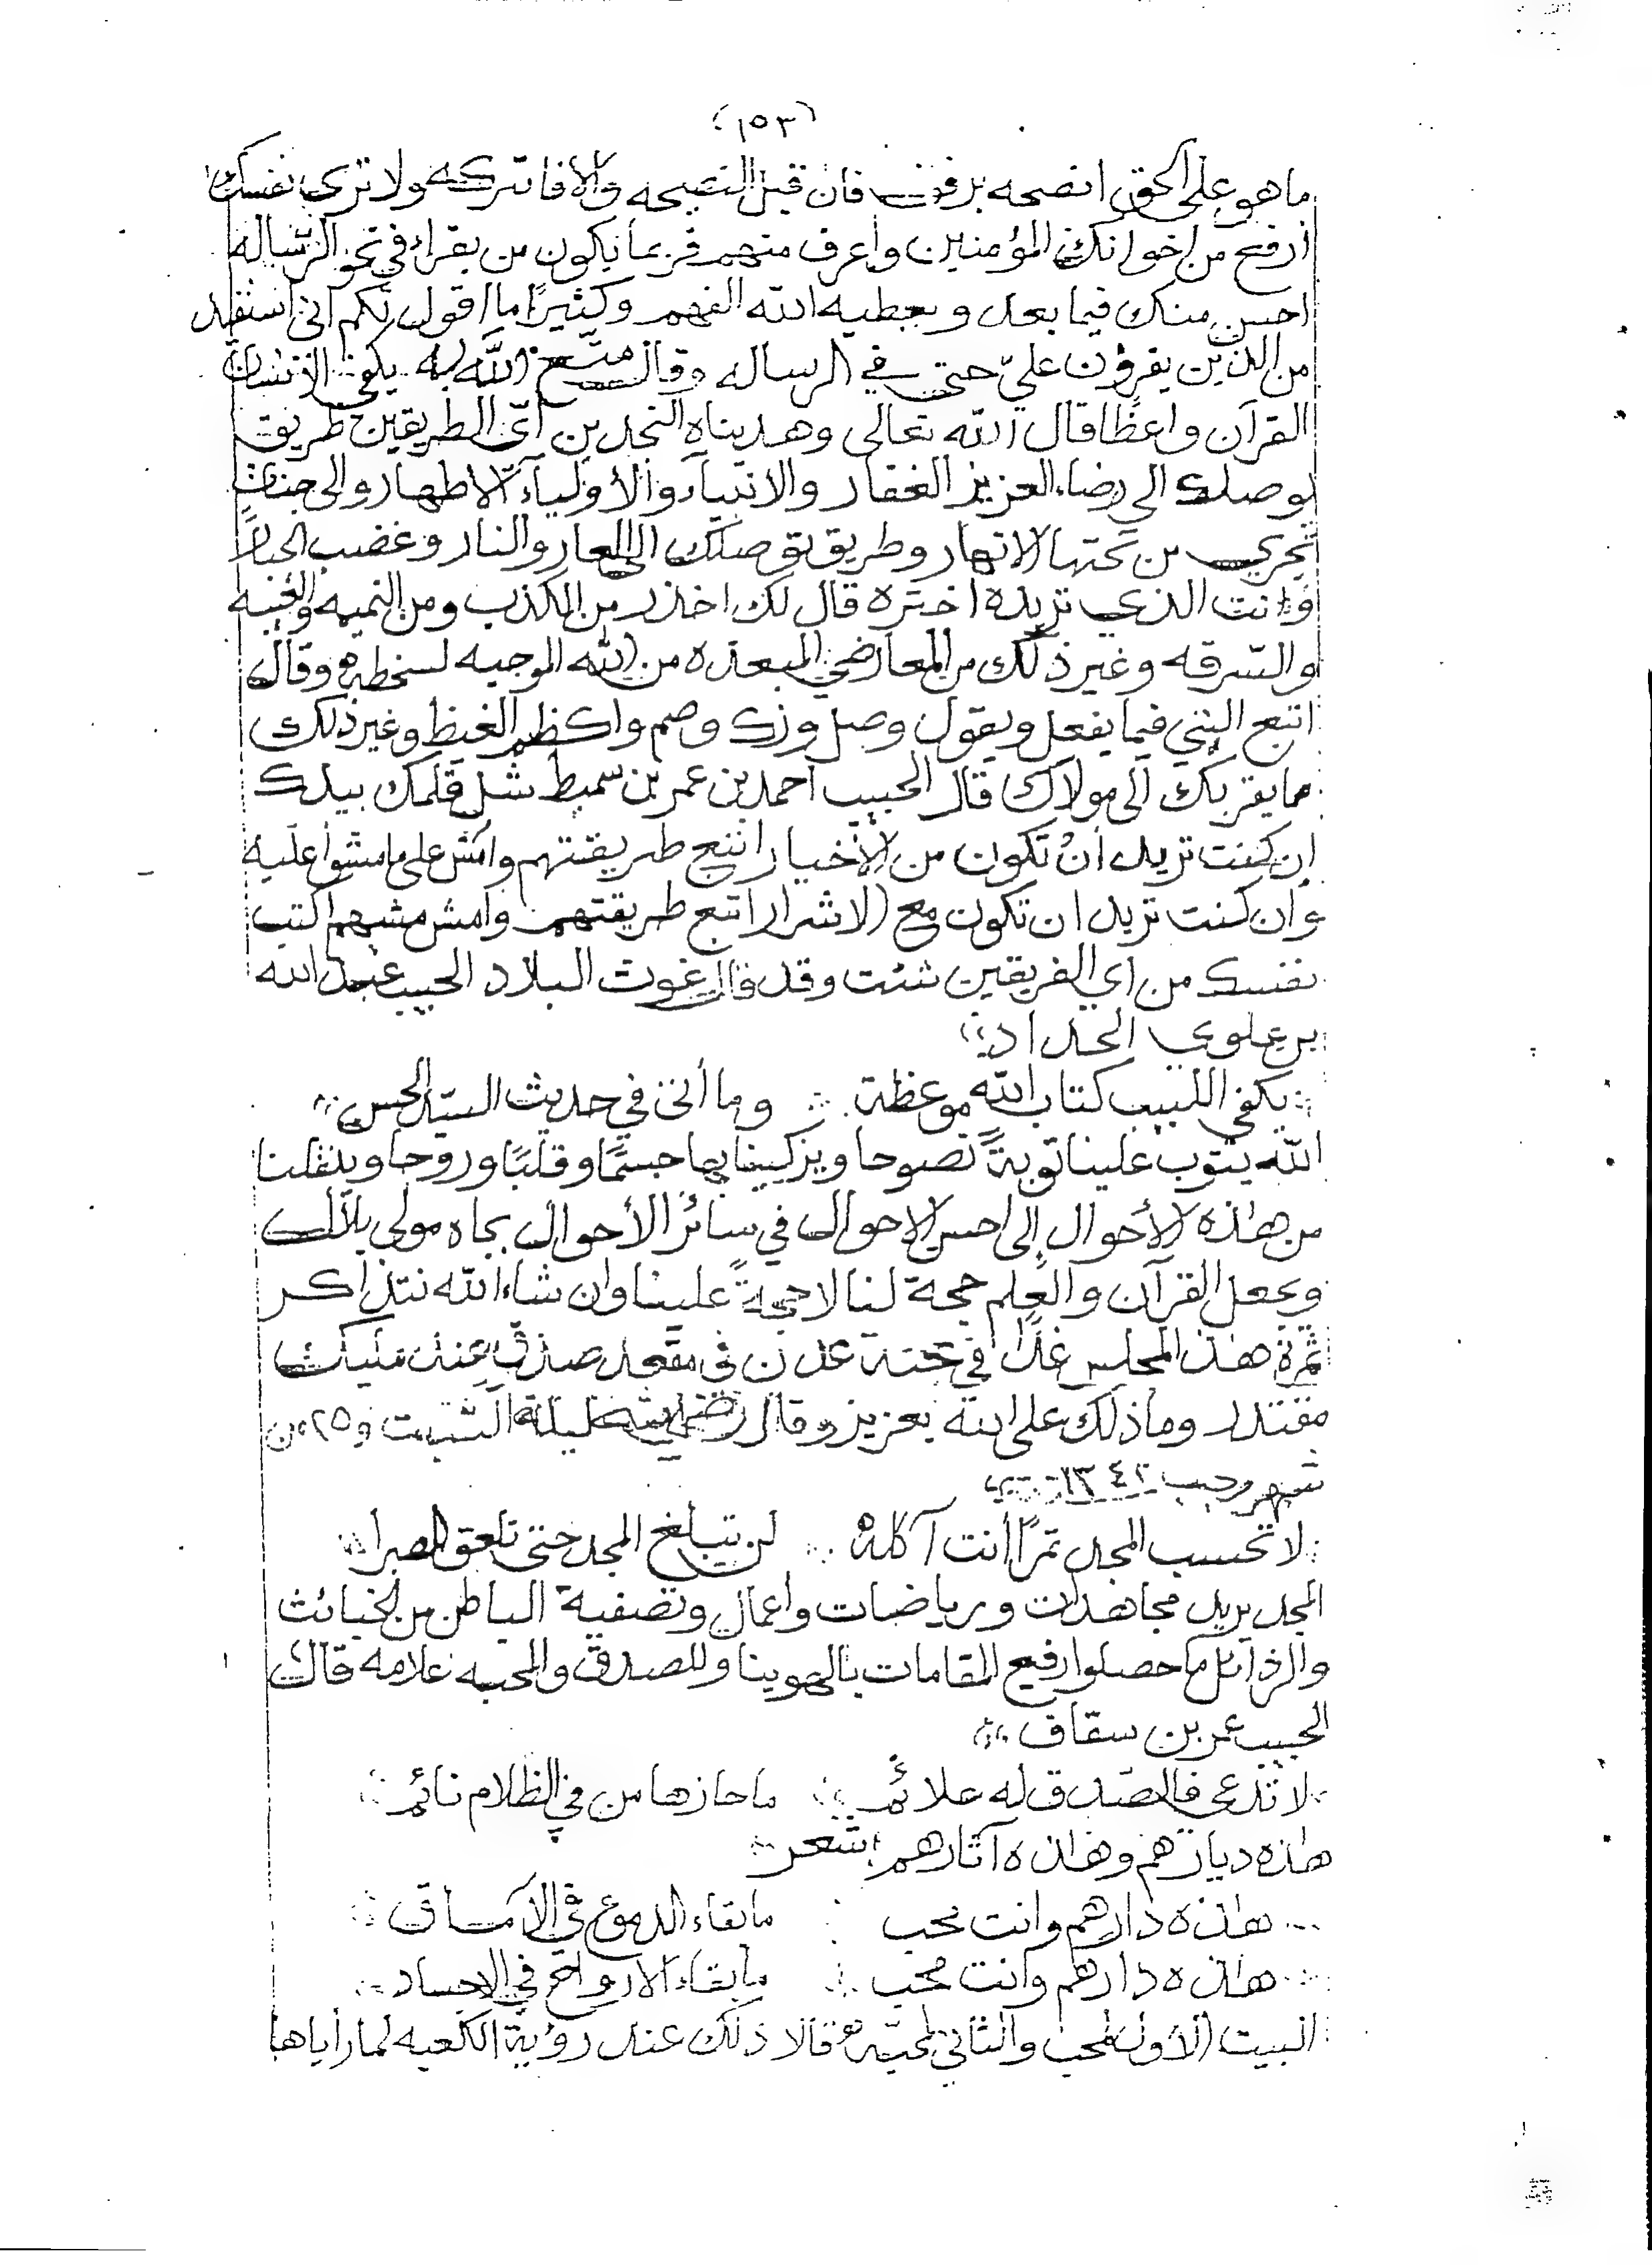 (١٥٣)
ما هو على الحق انصحه برفق فان قبل النصيحه والا فاتركه ولا ترى نفسك
أرفع من اخوانك المؤمنين واعرف منهم فربما يكون من يقراء في نحو الرساله
احسن منك فيما بعد ويعطيه الله الفهم وكثيرًا ما اقول لكم اني استفيد
من الذين يقرؤن عليّ حتى في الرساله وقال متّع الله به يكفي الانسان
القرآن واعظًا قال الله تعالى وهديناه النجدين أي الطريقين طريق
توصلك الى رضاء العزيز الغفار والانبياء والأولياء الاطهار والى جنات
تجري من تحتها الانهار وطريق توصلك الى العار والنار وغضب الجبار
وانت الذي تريده اختره قال لك احذر من الكذب ومن النميمه والغيبه
والسرقه وغير ذلك من المعاصي المبعده من الله الموجبه لسخطه وقال
اتبع النبي فيما يفعل ويقول وصل وزك وصم واكظم الغيظ وغير ذلك
مما يقربك الى مولاك قال الحبيب احمد بن عمر بن سميط شل قلمك بيدك
إن كنت تريد أن تكون من الأخيار اتبع طريقتهم وامش على ما مشوا عليه
وان كنت تريد ان تكون مع الاشرار اتبع طريقتهم وامش مشيهم اكتب
نفسك من اي الفريقين شئت وقد قال غوث البلاد الحبيب عبد الله
بن علوي الحداد
يكفي اللبيب كتاب الله موعظة وما أتى في حديث السيد الحسن
الله يتوب علينا توبةً نصوحا ويزكينا بها جسمًا وقلبًا وروحا وينقلنا
من هٰذه الأحوال إلى احسن الاحوال في سائر الأحوال بجاه مولى بلال
ويجعل القرآن والعلم حجة لنا لا حجةً علينا وان شاء الله نتذاكر
ثمرة هٰذا المجلس غدًا في جنة عدن في مقعد صدق عند مليك
مقتدر وما ذلك على الله بعزيز وقال رضي الله عنه ليلة السبت و٢٥ من
شهر رجب ١٣٤٢
لا تحسب المجد تمرًا أنت آكله لن تبلغ المجد حتى تلعق الصبرا
المجد يريد مجاهدات ورياضات واعمال وتصفية الباطن من الخبائث
والرذائل ما حصلوا رفيع المقامات بالهوينا وللصدق والمحبه علامه قال
الحبيب عمر بن سقاف
لا تدعي فالصدق له علائم ما حازها من في الظلام نائم
هٰذه ديارهم وهٰذه آثارهم شعر
هٰذه دارهم وانت محب ما بقاء الدموع في الآماق
هٰذه دارهم وانت محب ما بقاء الارواح في الاجساد
البيت الأول لمحب والثاني لمحبّه قالا ذلك عند رؤية الكعبه لما رأياها